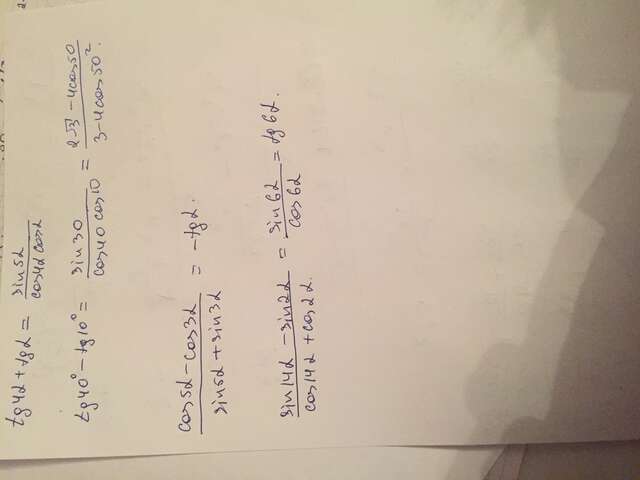 tg4α + tgα = sin5α / cos4α cosα
tg40° - tg10° = sin30 / cos40 cos10 = 2√3 - 4cos50 / 3 - 4cos50².
cos5α - cos3α / sin5α + sin3α = -tgα.
sin14α - sin2α / cos14α + cos2α. = sin6α / cos6α = tg6α.